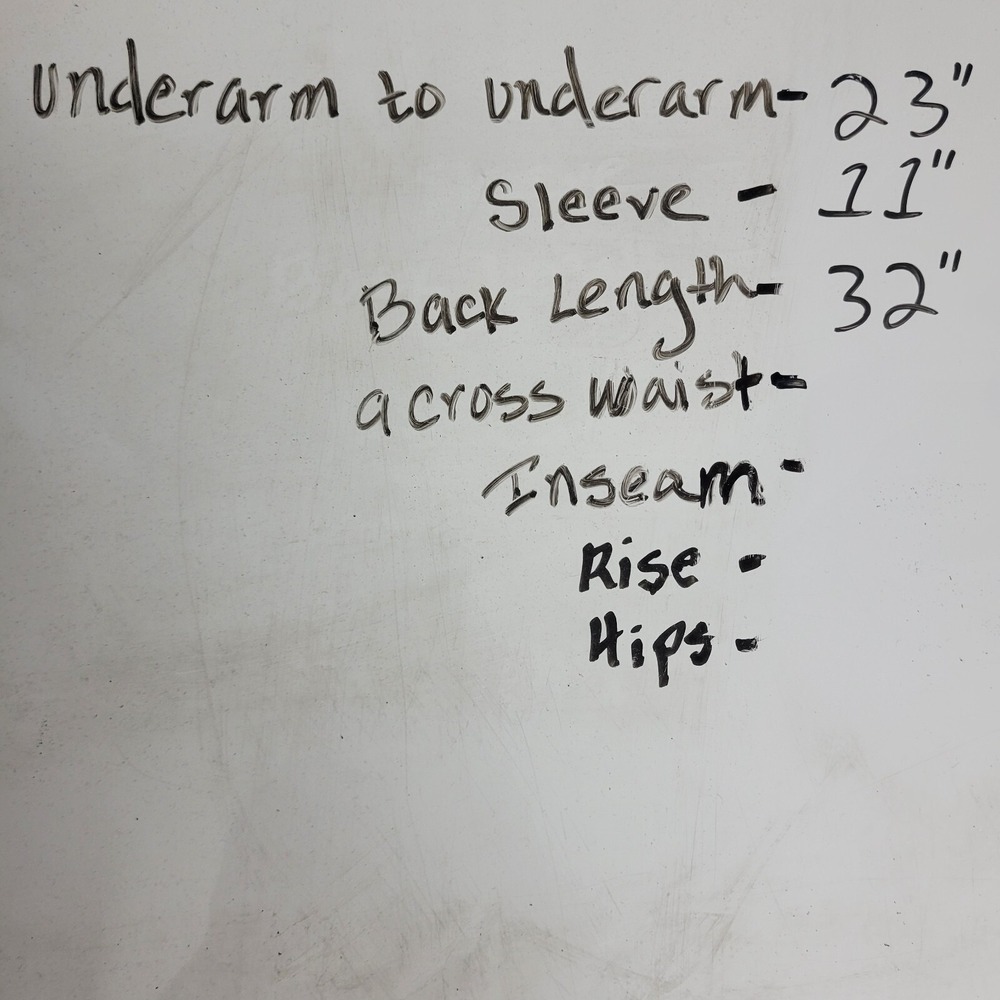 underarm to underarm- 23"
Sleeve - 11"
Back Length- 32"
across waist-
Inseam-
Rise -
Hips-